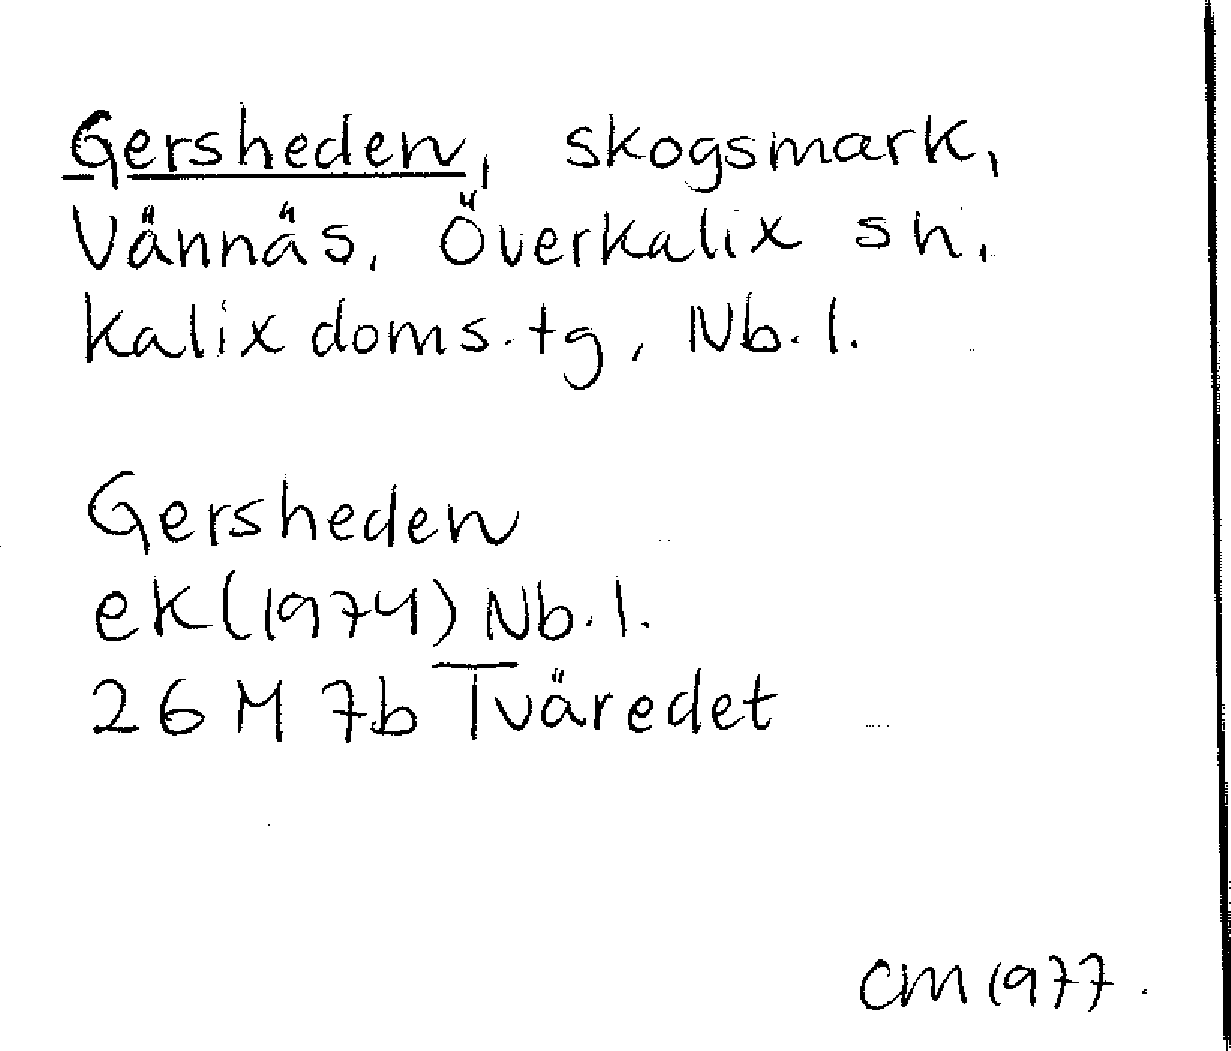 Gersheden, skogsmark,
Vännäs, Överkalix sn,
Kalix doms.tg, Nb.l.
Gersheden
ek(1974) Nb.l.
26 M 7b Tväredet
CM 1977.